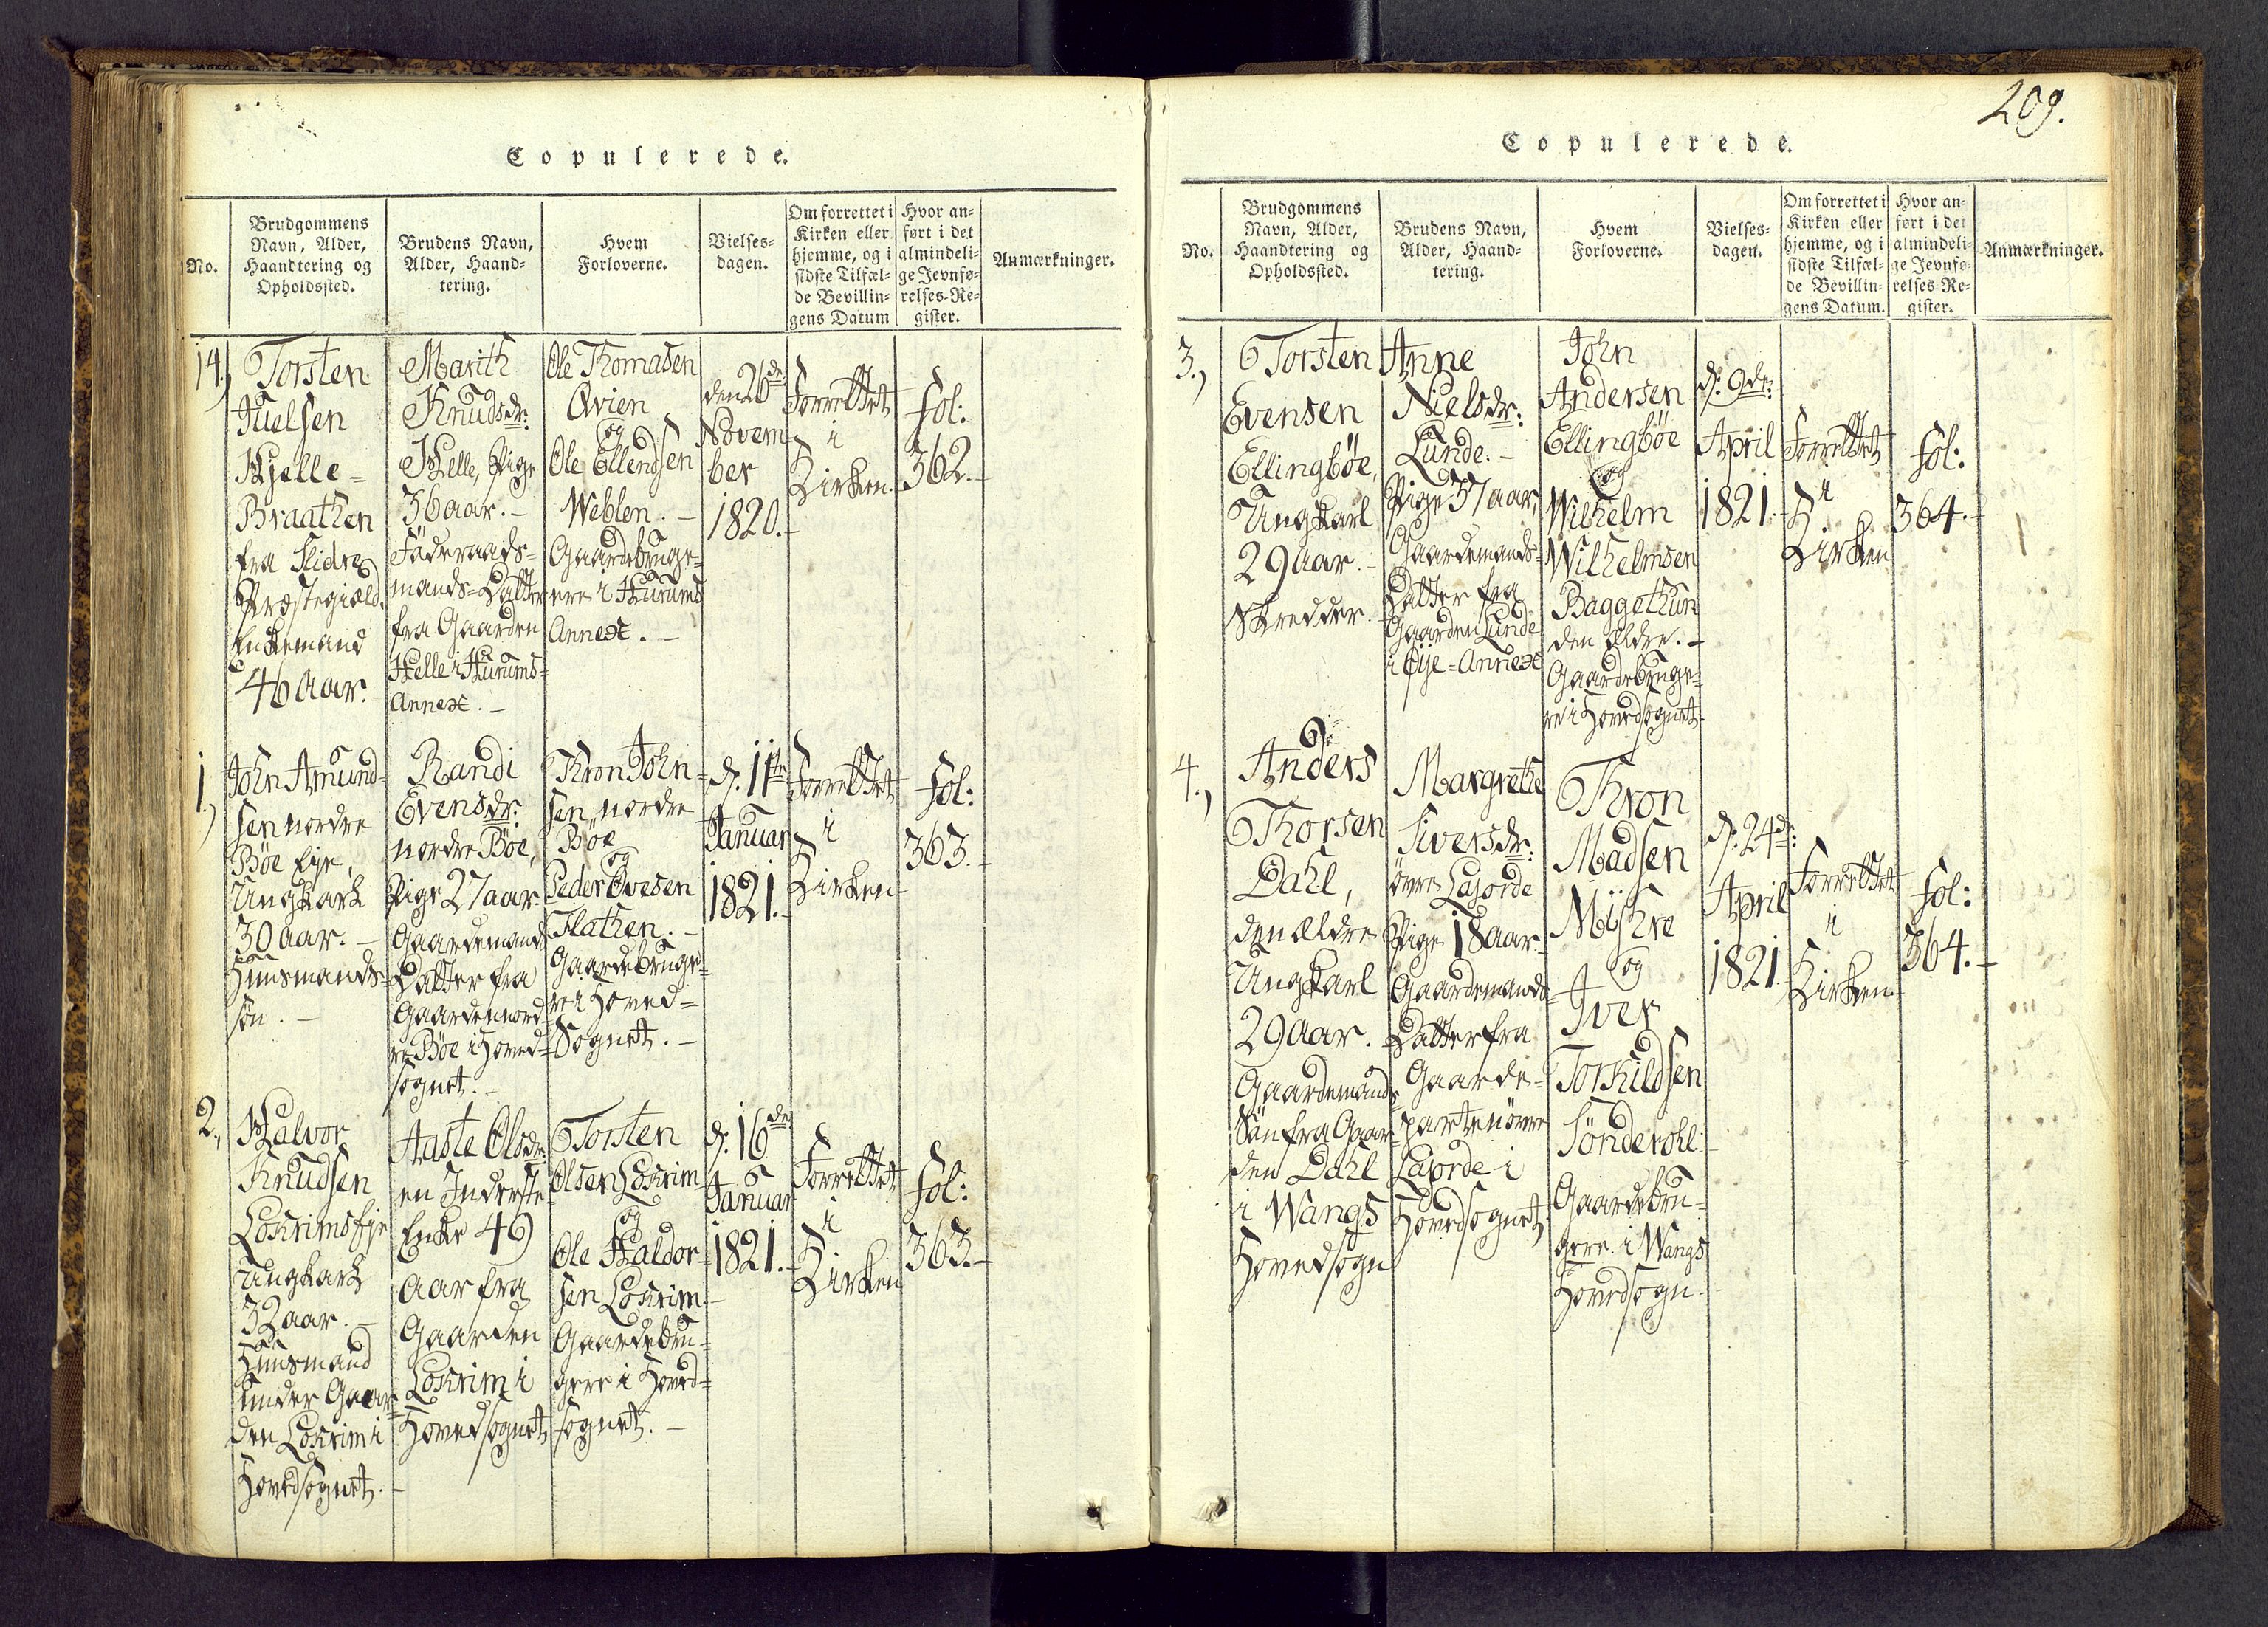 Copulerede.
No.
Brudgommens
Navn, Alder,
Haandtering og
Opholdssted.
Brudens Navn,
Alder, Haand-
tering.
Hvem
Forloverne.
Vielses-
dagen.
Om forrettet i
Kirken eller
hjemme, og i
sidste Tilfæl-
de Bevillin-
gens Datum
Hvor an-
ført i det
almindeli-
ge Jevnfø-
relses-Re-
gister.
Anmærkninger.
14.,
Torsten
Juelsen
Hjelle-
Braathen
fra Slidre
Præstegiæld.
Enkemand
46 Aar.
Marith
Knudsdr:
Helle, Pige
36 aar. -
Föderaads-
mands-Datter
fra Gaarden
Helle i Hurums-
Annex. -
Ole Thomasen
Qvien
og
Ole Ellendsen
Weblen. -
Gaardebruge-
rere i Hurums
Annex. -
den 26de
Novem
ber
1820. -
Forrettet
i
Kirken.
fol:
362. -
1.,
John Amund-
sen nordre
Böe Eje,
Ungkarl
30 aar. -
Huusmands-
søn. -
Randi
Evensdr:
nordre Böe,
Pige 27 aar
Gaardemands
Datter fra
Gaarden nord-
re Böe i Hoved-
sognet. -
Thron John-
sen nordre
Böe
og
Peder Ovesen
Flathen. -
Gaardebruge-
re i Hoved-
Sognet. -
d: 11te
Januar
1821. -
Forrettet
i
Kirken
fol:
363. -
2.,
Halvor
Knudsen
Loskrims Eje
Ungkarl
32 aar. -
Huusmand
under Gaar-
den Loskrim i
Hovedsognet. -
Aaste Olsdr.
en Inderste
Enke 49
Aar fra
Gaarden
Loskrim i
Hovedsognet
Torsten
Olsen Loskrim
og
Ole Haldor-
sen Loskrim. -
Gaardebru-
gere i Hoved-
sognet. -
d: 16de
Januar
1821. -
Forrettet
i
Kirken
fol:
363. -
209.
Copulerede.
No.
Brudgommens
Navn, Alder,
Haandtering og
Opholdssted.
Brudens Navn,
Alder, Haand-
tering.
Hvem
Forloverne.
Vielses-
dagen.
Om forrettet i
Kirken eller
hjemme, og i
sidste Tilfæl-
de Bevillin-
gens Datum.
Hvor an-
ført i det
almindeli-
ge Jevnfø-
relses Re-
gister.
Anmærkninger.
3.,
Torsten
Evensen
Ellingböe,
Ungkarl
29 Aar. -
Skredder.
Anne
Nielsdr:
Lunde. -
Pige 37 aar,
Gaardemands-
Datter fra
Gaarden Lunde
i Øije-Annex
John
Andersen
Ellingböe
og
Wilhelm
Wilhelmsen
Baggethun
den Eldre. -
Gaardebruge-
re i Hovedsognet.
d: 9de:
April
1821. -
Forrettet
i
Kirken
fol:
364. -
4.,
Anders
Thorsen
Dahl,
den ældre
Ungkarl
29 Aar.
Gaardemands
Sön fra Gaar-
den Dahl
i Wangs
Hovedsogn
Margrethe
Siversdr:
övre Lajorde
Pige 18 aar
Gaardemands-
Datter fra
Gaarde-
parten övre
Lajorde i
Hovedsognet
Thron
Madsen
Mÿhre
og
Iver
Torkildsen
Sönderohl
Gaardebru-
gere i Wangs
Hovedsogn.
d: 24de:
April
1821
Forrettet
i
Kirken.
fol:
364. -